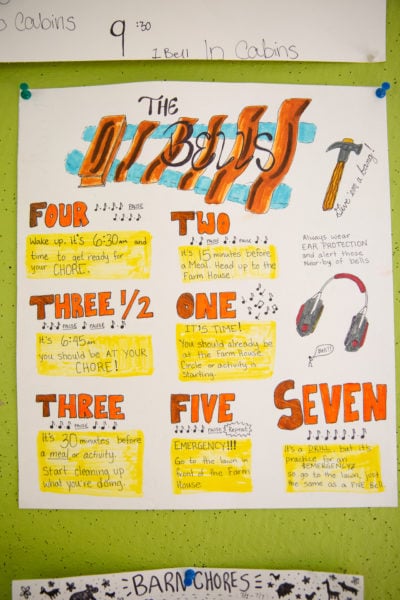 Cabins
9:30
1 Bell In Cabins
THE
BELLS
Give 'em a bang!
FOUR
PAUSE
Wake up, it's 6:30am and
time to get ready for
your CHORE.
TWO
PAUSE PAUSE
It's 15 minutes before
a Meal. Head up to the
Farm House.
Always wear
EAR PROTECTION
and alert those
near by of bells
THREE 1/2
PAUSE PAUSE
It's 6:45am
you should be AT YOUR
CHORE!
ONE
IT'S TIME!
You should already be
at the Farm House
Circle or activity is
starting.
THREE
PAUSE
It's 30 minutes before
a meal or activity.
Start cleaning up
what you're doing.
FIVE
PAUSE Repeat
EMERGENCY!!!
Go to the lawn in
front of the Farm
House
SEVEN
It's a DRILL, but it's
practice for an
EMERGENCY
so go to the lawn, just
the same as a FIVE Bell.
BARN CHORES